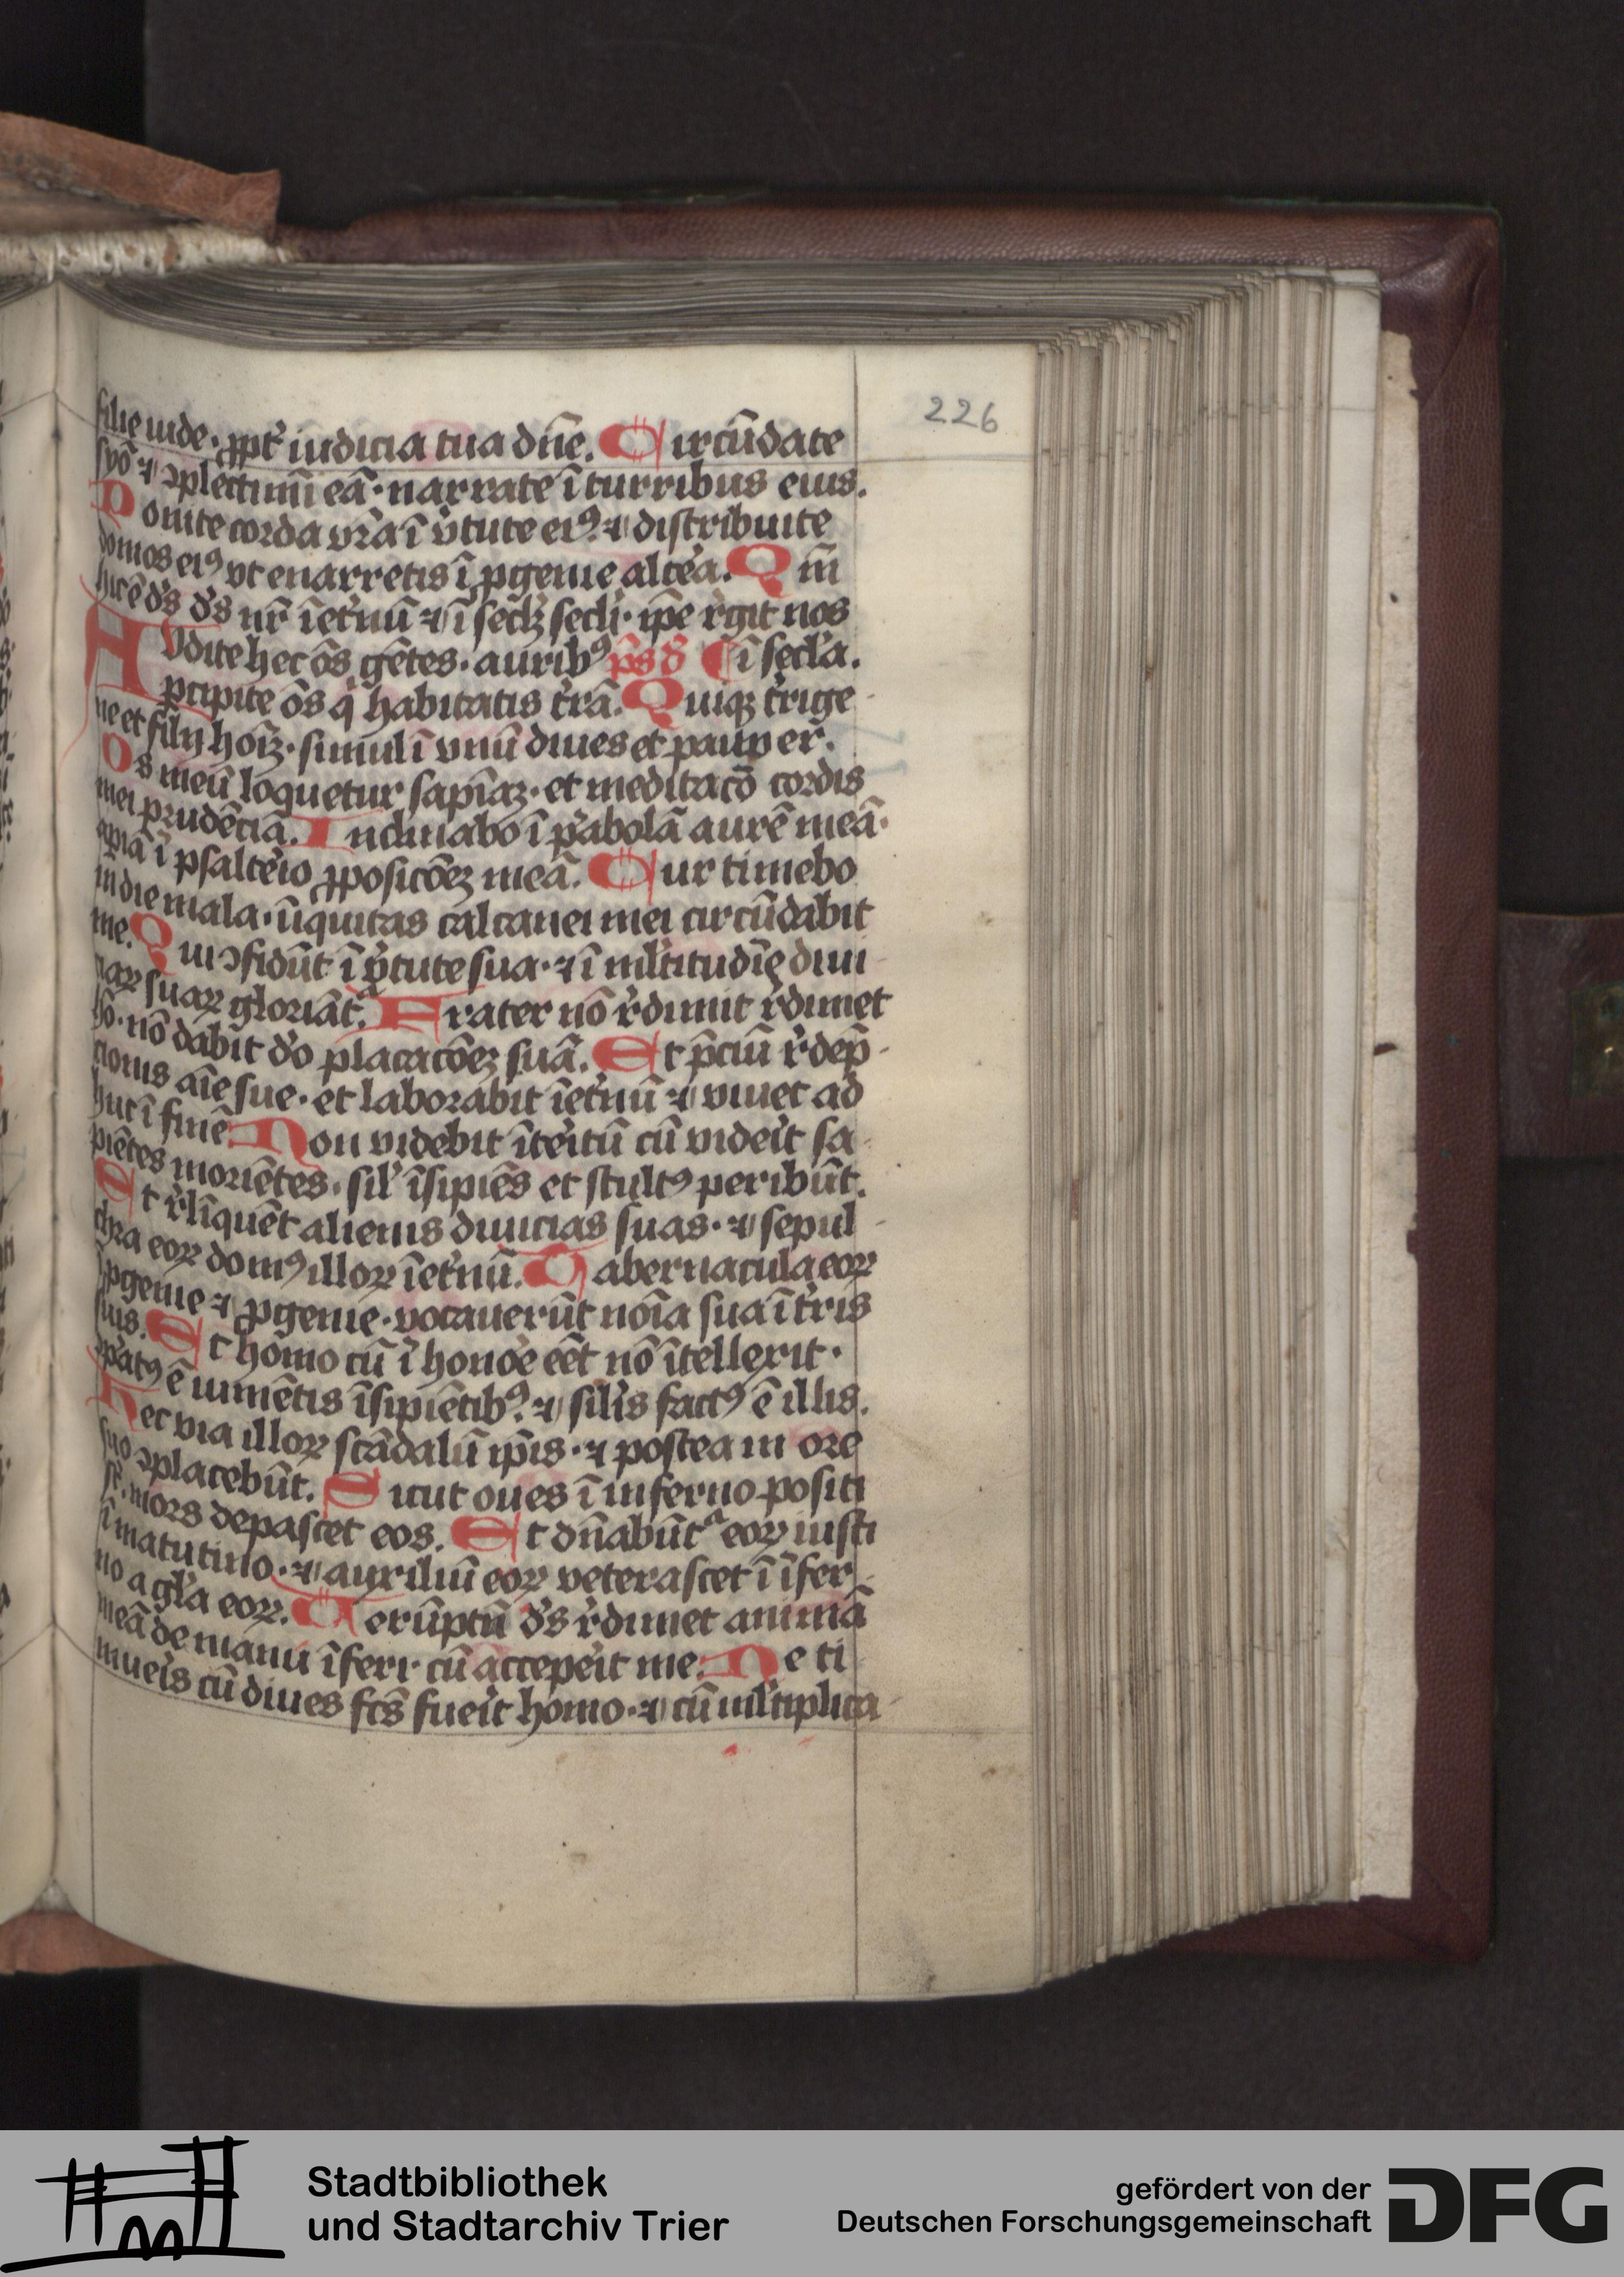 226
filie iude· ꝓpt̉ iudicia tua dn̄e. Circūdate
syō ⁊ ꝯplectimī eā· narrate ī turribus eius.
Ponite corda vr̄a ī v̉tute eiꝰ· ⁊ distribuite
domos eiꝰ vt enarretis ī ꝓgenie alt̉ea. Qm̄
hic ē d̉s d̉s nr̄ īet̉nū ⁊ ī secl̄ꝫ secl̄i· ip̄e r̉git nos
Avdite hec ōs gētes· auribꝰ ps d̄ ī secl̉a.
pcipite ōs q̇ habitatis t̉rā. Quiqꝫ t̉rige
ne et filij hoīꝫ· simul ī vnū diues et pauper.
Os meū loquetur sapīaꝫ· et meditacō cordis
mei prudēciā. Inclinabo ī p̉abolā aurē meā·
apiā ī psalt̉eio ꝓposicōeꝫ meā. Cur timebo
in die mala· īiquitas calcanei mei circūdabit
me. Qui ꝯfidūt ī v̉tute sua· ⁊ ī ml̉titudīe diui
ciaꝝ suaꝝ gloriāt̉. Frater nō r̉dimit r̉dimet
hō· nō dabit d̉o placacōeꝫ suā. Et p̄ciū r̉dep̄
cionis aīe sue· et laborabit īet̉nū ⁊ viuet ad
huc ī finē Non videbit īt̉eitū cū vid̉eit sa
piētes moriētes· sil̉ īsipiēs et stultꝰ peribūt.
Et r̉līquēt alienis diuicias suas· ⁊ sepul
chra eoꝝ domꝰ illoꝝ īet̉nū. Tabernacula eoꝝ
ī ꝓgenie ⁊ ꝓgenie· vocauerūt noīa sua ī t̉ris
suis. Et homo cū ī honỏe eēt nō ītellexit·
ꝯp̉atꝰ ē iumētis īsipiētibꝰ· ⁊ sil̉is factꝰ ē illis.
Hec via illoꝝ scādalū ip̄is· ⁊ postea in ore
suo ꝯplacebūt. Sicut oues ī inferno positi
st̄· mors depascet eos. Et dn̄abūtᵃ eoꝝ iusti
ī matutino· ⁊ auxiliū eoꝝ veterascet ī īfer
no a gl̉a eoꝝ. Verūptn̄ d̉s r̉dimet animā
meā de manu īferi· cū accep̉eit me. Ne ti
mủeis cū diues fcs̄ fủeit homo· ⁊ cū ml̉tiplica
Stadtbibliothek
und Stadtarchiv Trier
gefördert von der
Deutschen Forschungsgemeinschaft
DFG